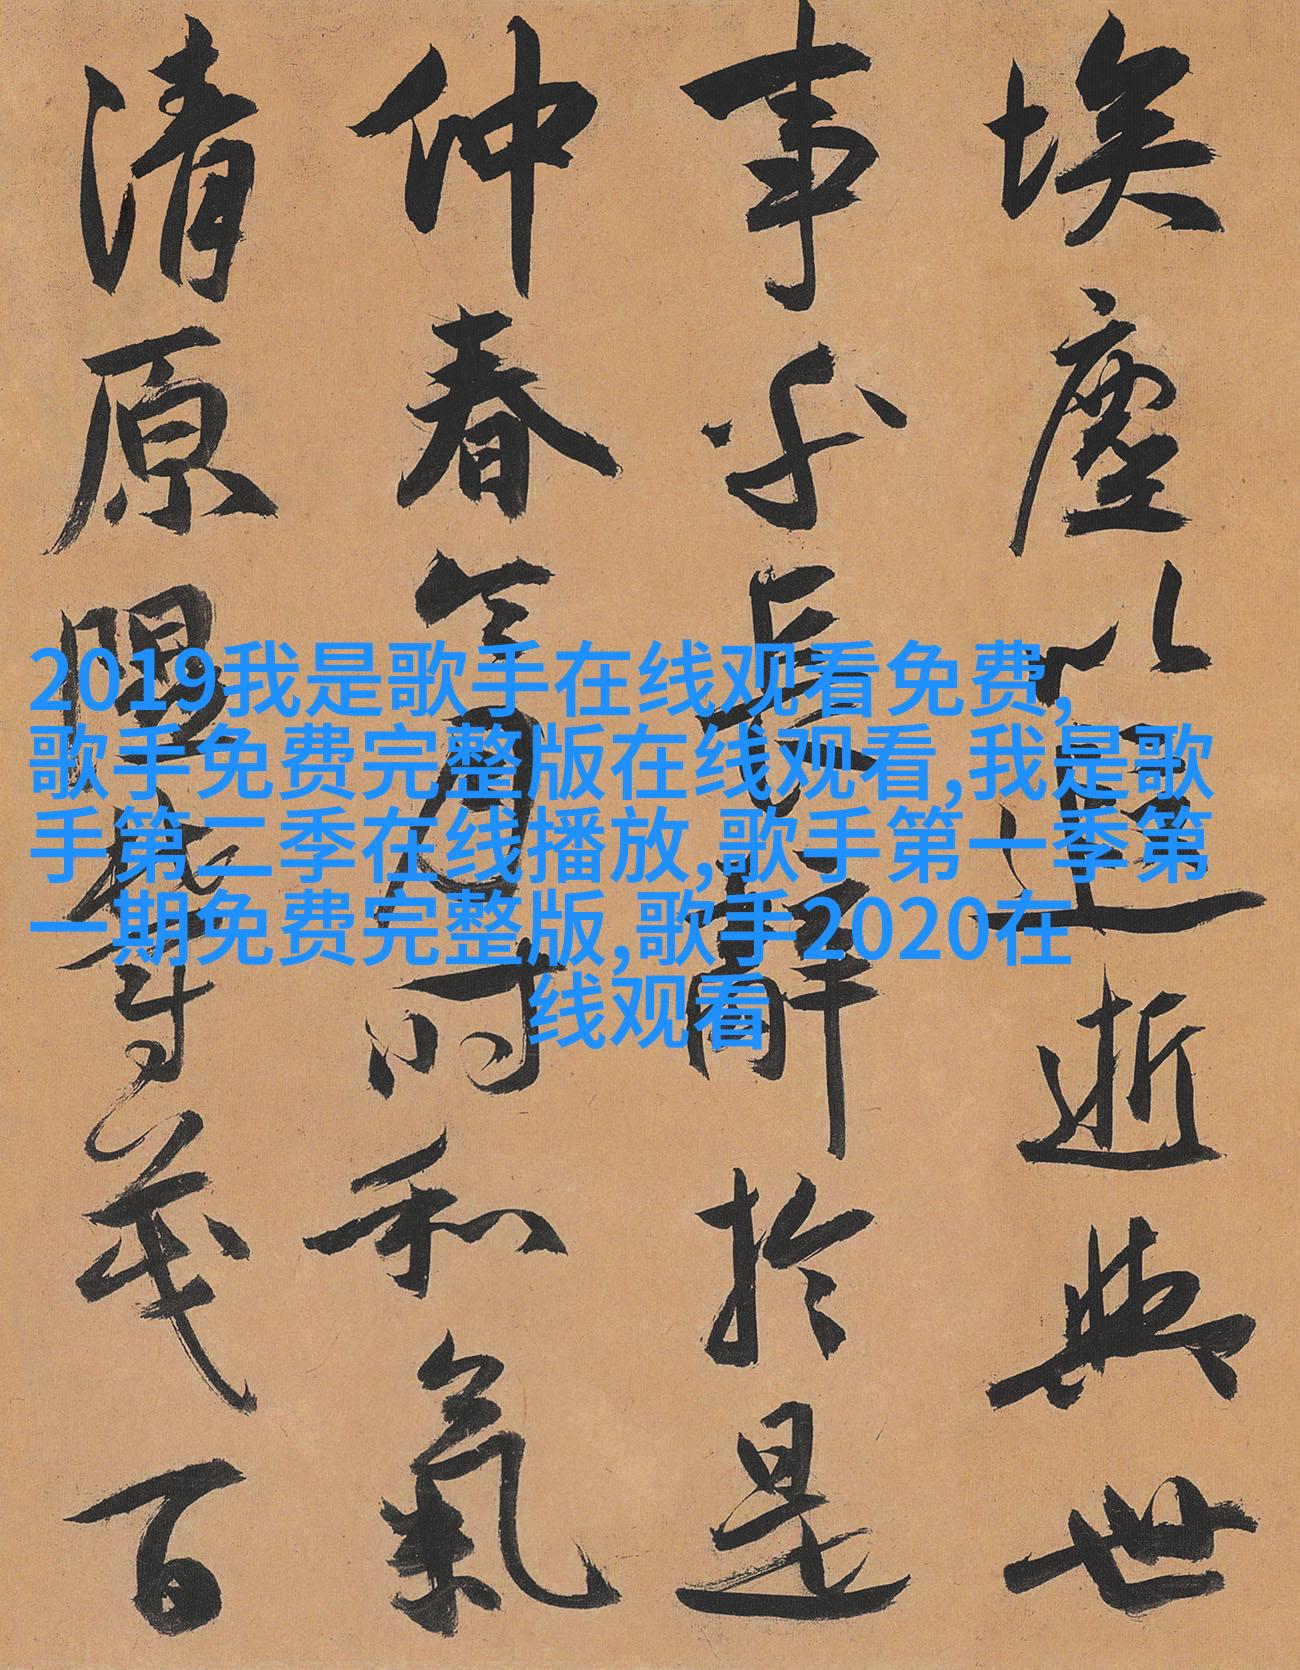 埃塵以遐逝與世
事乎長辭於是
仲春令月時和氣
清原隰鬱茂百
2019我是歌手在线观看免费,
歌手免费完整版在线观看,我是歌
手第二季在线播放,歌手第一季第
一期免费完整版,歌手2020在
线观看